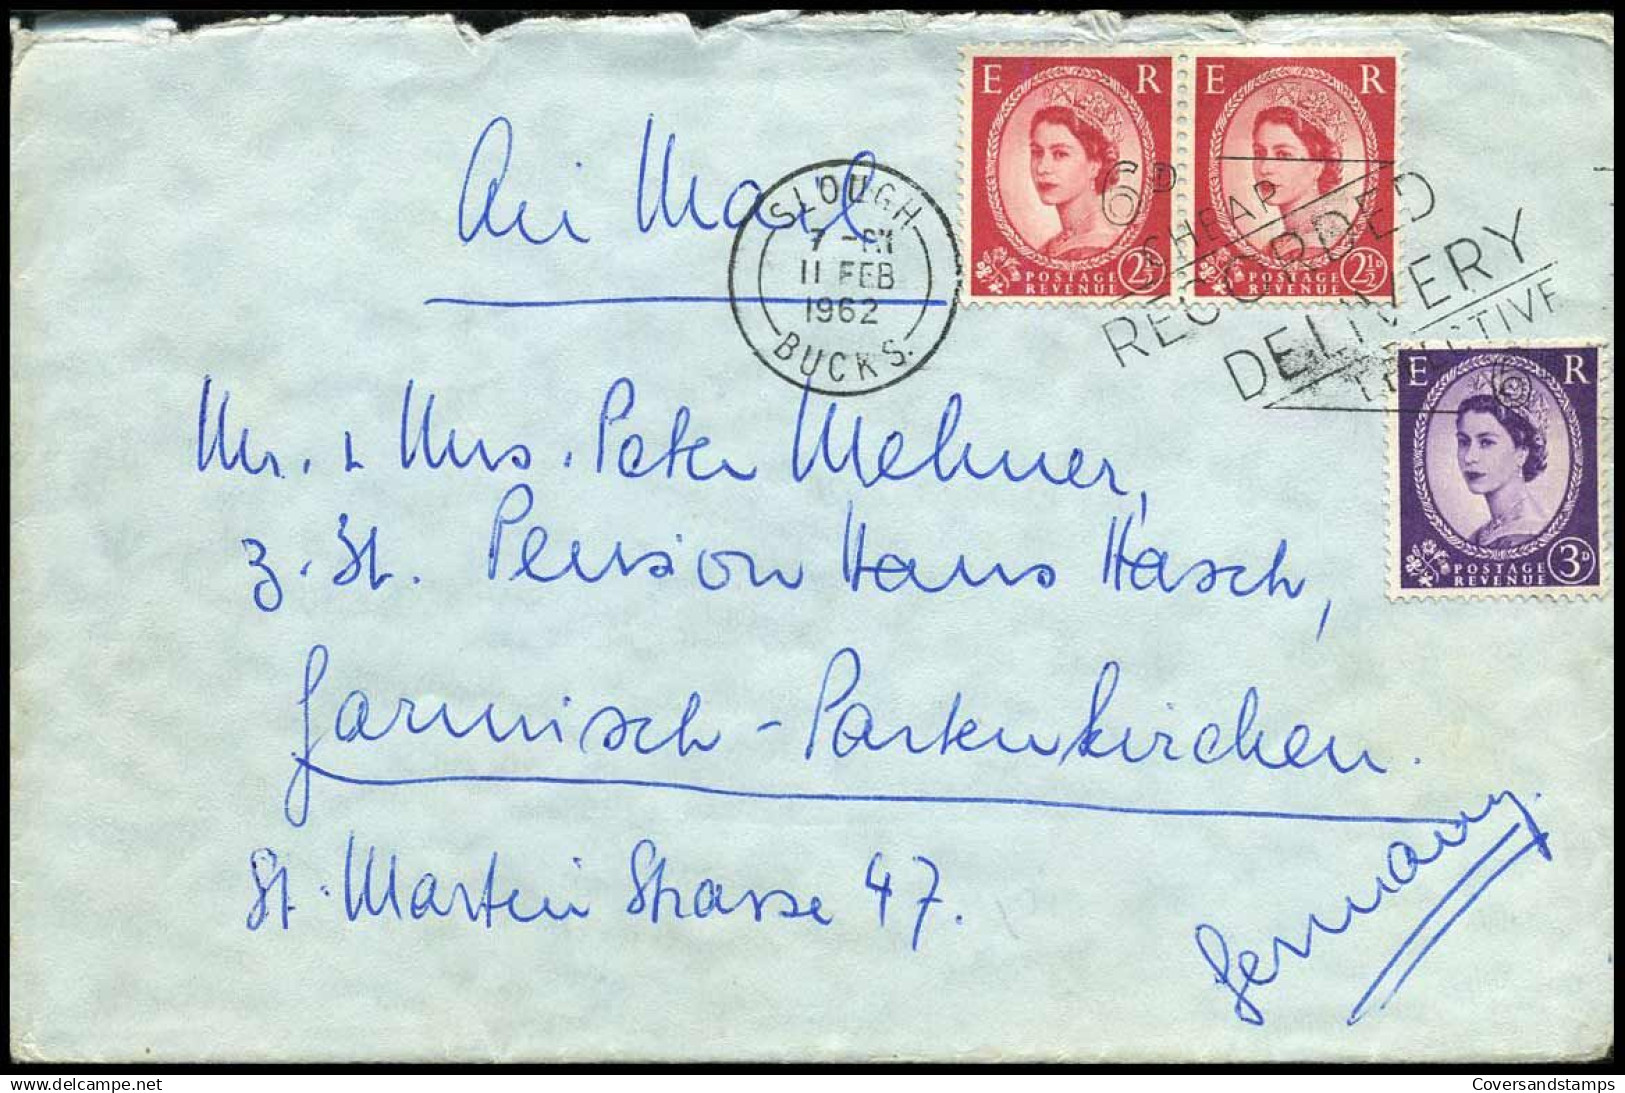 Air Mail
SLOUGH
11 FEB
1962
BUCKS.
E R
POSTAGE
REVENUE
2½D
E R
POSTAGE
REVENUE
2½D
6D
CHEAP
RECORDED
DELIVERY
E R
POSTAGE
REVENUE
3D
Mr. & Mrs. Peter Mehner,
z. St. Pension Haus Hasch,
Garmisch-Partenkirchen.
St. Martin Strasse 47.
Germany.
Coversandstamps